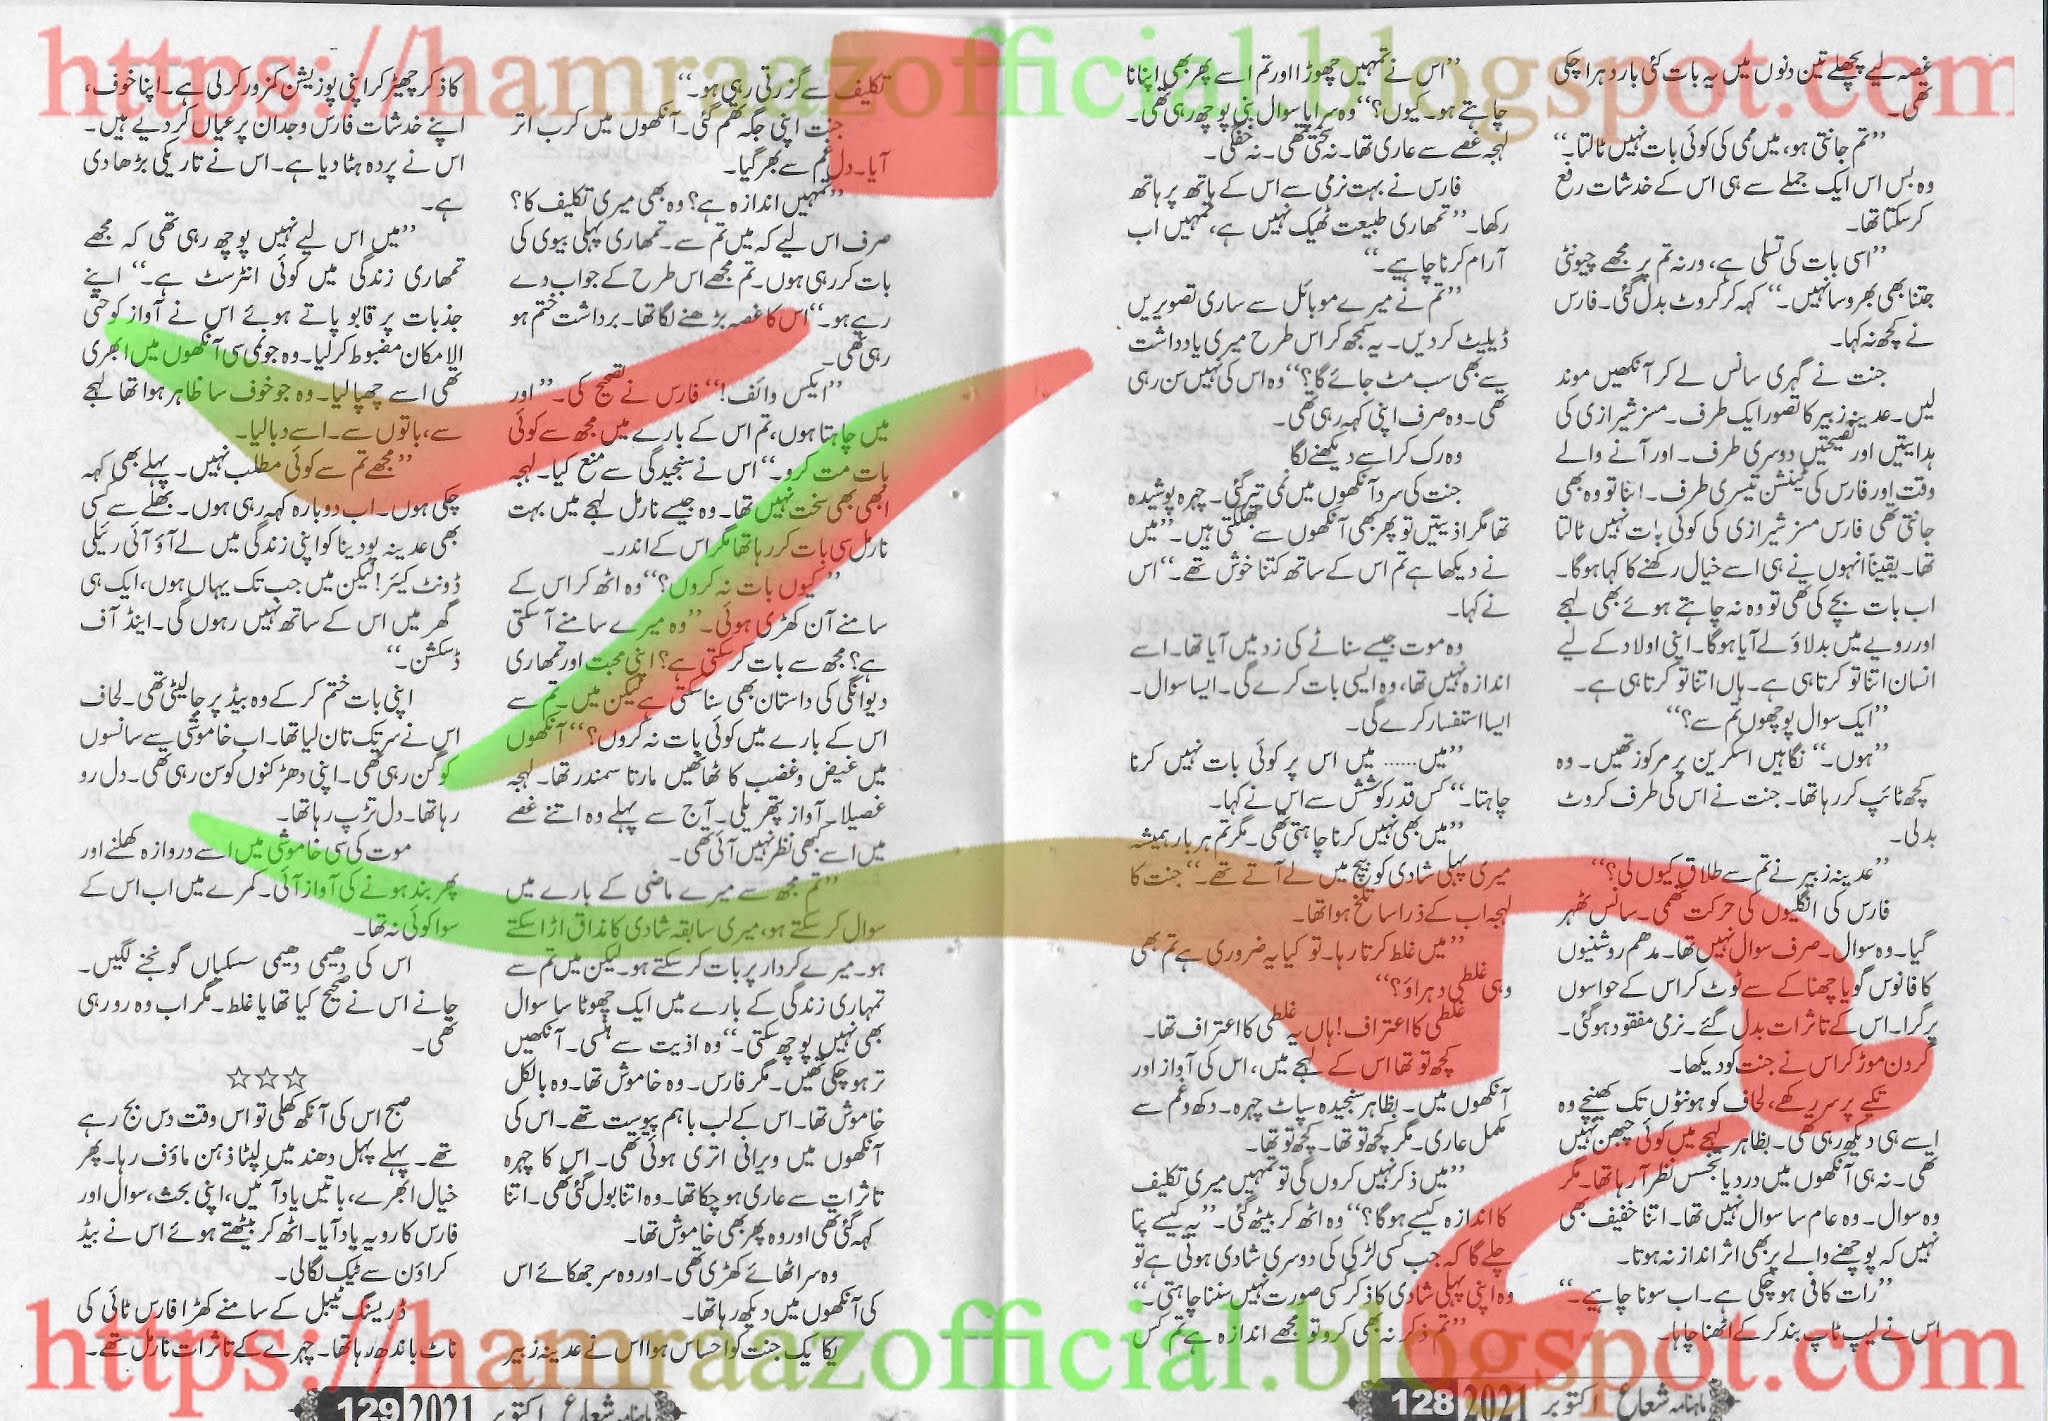 https://hamraazofficial.blogspot.com
غصہ لیے پچھلے تین دنوں میں یہ بات کئی بار دوہرا چکی
تھی۔
”تم جانتی ہو، میں ممی کی کوئی بات نہیں ٹالتا۔“
وہ بس اس ایک جملے سے ہی اس کے خدشات رفع
کر سکتا تھا۔
”اسی بات کی تسلی ہے، ورنہ تم پر مجھے چیونٹی
جتنا بھی بھروسا نہیں۔“ کہہ کر کروٹ بدل گئی۔ فارس
نے کچھ نہ کہا۔
جنت نے گہری سانس لے کر آنکھیں موند
لیں۔ عدینہ زبیر کا تصور ایک طرف۔ مسز شیرازی کی
ہدایتیں اور نصیحتیں دوسری طرف۔ اور آنے والے
وقت اور فارس کی ٹینشن تیسری طرف۔ اتنا تو وہ بھی
جانتی تھی فارس مسز شیرازی کی کوئی بات نہیں ٹالتا
تھا۔ یقیناً انہوں نے ہی اسے خیال رکھنے کا کہا ہوگا۔
اب بات بچے کی تھی تو وہ نہ چاہتے ہوئے بھی لہجے
اور رویے میں بدلاؤ لے آیا ہوگا۔ اپنی اولاد کے لیے
انسان اتنا تو کرتا ہی ہے۔ ہاں اتنا تو کرتا ہی ہے۔
”ایک سوال پوچھوں تم سے؟“
”ہوں۔“ نگاہیں اسکرین پر مرکوز تھیں۔ وہ
کچھ ٹائپ کر رہا تھا۔ جنت نے اس کی طرف کروٹ
بدلی۔
”عدینہ زبیر نے تم سے طلاق کیوں لی؟“
فارس کی انگلیوں کی حرکت تھمی۔ سانس ٹھہر
گیا۔ وہ سوال۔ صرف سوال نہیں تھا۔ مدھم روشنیوں
کا فانوس گویا چھناکے سے ٹوٹ کر اس کے حواسوں
پر گرا۔ اس کے تاثرات بدل گئے۔ نرمی مفقود ہو گئی۔
گردن موڑ کر اس نے جنت کو دیکھا۔
تکیے پر سر رکھے، لحاف کو ہونٹوں تک کھینچے وہ
اسے ہی دیکھ رہی تھی۔ بظاہر لہجے میں کوئی چبھن نہیں
تھی۔ نہ ہی آنکھوں میں درد یا تجسس نظر آ رہا تھا۔ مگر
وہ سوال۔ وہ عام سا سوال نہیں تھا۔ اتنا خفیف بھی
نہیں کہ پوچھنے والے پر بھی اثر انداز نہ ہوتا۔
”رات کافی ہو چکی ہے۔ اب سونا چاہیے۔“
اس نے لیپ ٹاپ بند کر کے اٹھنا چاہا۔
”اس نے تمہیں چھوڑا اور تم اسے پھر بھی اپنانا
چاہتے ہو۔ کیوں؟“ وہ سراپا سوال بنی پوچھ رہی تھی۔
لہجہ غصے سے عاری تھا۔ نہ سختی تھی۔ نہ خفگی۔
فارس نے بہت نرمی سے اس کے ہاتھ پر ہاتھ
رکھا۔ ”تمھاری طبیعت ٹھیک نہیں ہے، تمہیں اب
آرام کرنا چاہیے۔“
”تم نے میرے موبائل سے ساری تصویریں
ڈیلیٹ کر دیں۔ یہ سمجھ کر اس طرح میری یادداشت
سے بھی سب مٹ جائے گا؟“ وہ اس کی نہیں سن رہی
تھی۔ وہ صرف اپنی کہہ رہی تھی۔
وہ رک کر اسے دیکھنے لگا
جنت کی سرد آنکھوں میں نمی تیر گئی۔ چہرہ پوشیدہ
تھا مگر اذیتیں تو پھر بھی آنکھوں سے جھلکتی ہیں۔ ”میں
نے دیکھا ہے تم اس کے ساتھ کتنا خوش تھے۔“ اس
نے کہا۔
وہ موت جیسے سناٹے کی زد میں آیا تھا۔ اسے
اندازہ نہیں تھا، وہ ایسی بات کرے گی۔ ایسا سوال۔
ایسا استفسار کرے گی۔
”میں...... میں اس پر کوئی بات نہیں کرنا
چاہتا۔“ کس قدر کوشش سے اس نے کہا۔
”میں بھی نہیں کرنا چاہتی تھی۔ مگر تم ہر بار ہمیشہ
میری پہلی شادی کو بیچ میں لے آتے تھے۔“ جنت کا
لہجہ اب کے ذرا سا تلخ ہوا تھا۔
”میں غلط کرتا رہا۔ تو کیا یہ ضروری ہے تم بھی
وہی غلطی دہراؤ؟“
غلطی کا اعتراف! ہاں یہ غلطی کا اعتراف تھا۔
کچھ تو تھا اس کے لہجے میں، اس کی آواز اور
آنکھوں میں۔ بظاہر سنجیدہ سپاٹ چہرہ۔ دکھ و غم سے
مکمل عاری۔ مگر کچھ تو تھا۔ کچھ تو تھا۔
”میں ذکر نہیں کروں گی تو تمہیں میری تکلیف
کا اندازہ کیسے ہوگا؟“ وہ اٹھ کر بیٹھ گئی۔ ”یہ کیسے پتا
چلے گا کہ جب کسی لڑکی کی دوسری شادی ہوتی ہے تو
وہ اپنی پہلی شادی کا ذکر کسی صورت نہیں سننا چاہتی۔“
”تم ذکر نہ بھی کرو تو مجھے اندازہ ہے تم کس
ماہنامہ شعاع اکتوبر 2021 128
تکلیف سے گزرتی رہی ہو۔“
جنت اپنی جگہ تھم گئی۔ آنکھوں میں کرب اتر
آیا۔ دل غم سے بھر گیا۔
”تمہیں اندازہ ہے؟ وہ بھی میری تکلیف کا؟
صرف اس لیے کہ میں تم سے۔ تمھاری پہلی بیوی کی
بات کر رہی ہوں۔ تم مجھے اس طرح کے جواب دے
رہے ہو۔“ اس کا غصہ بڑھنے لگا تھا۔ برداشت ختم ہو
رہی تھی۔
”ایکس وائف!“ فارس نے تصحیح کی۔ ”اور
میں چاہتا ہوں، تم اس کے بارے میں مجھ سے کوئی
بات مت کرو۔“ اس نے سنجیدگی سے منع کیا۔ لہجہ
ابھی بھی سخت نہیں تھا۔ وہ جیسے نارمل لہجے میں بہت
نارمل سی بات کر رہا تھا مگر اس کے اندر۔
”کیوں بات نہ کروں؟“ وہ اٹھ کر اس کے
سامنے آن کھڑی ہوئی۔ ”وہ میرے سامنے آ سکتی
ہے؟ مجھ سے بات کر سکتی ہے؟ اپنی محبت اور تمھاری
دیوانگی کی داستان بھی سنا سکتی ہے لیکن میں۔ تم سے
اس کے بارے میں کوئی بات نہ کروں؟“ آنکھوں
میں غیض و غضب کا ٹھاٹھیں مارتا سمندر تھا۔ لہجہ
غصیلا۔ آواز پتھریلی۔ آج سے پہلے وہ اتنے غصے
میں اسے کبھی نظر نہیں آئی تھی۔
”تم مجھ سے میرے ماضی کے بارے میں
سوال کر سکتے ہو، میری سابقہ شادی کا مذاق اڑا سکتے
ہو۔ میرے کردار پر بات کر سکتے ہو۔ لیکن میں تم سے
تمہاری زندگی کے بارے میں ایک چھوٹا سا سوال
بھی نہیں پوچھ سکتی۔“ وہ اذیت سے ہنسی۔ آنکھیں
تر ہو چکی تھیں۔ مگر فارس۔ وہ خاموش تھا۔ وہ بالکل
خاموش تھا۔ اس کے لب باہم پیوست تھے۔ اس کی
آنکھوں میں ویرانی اتری ہوئی تھی۔ اس کا چہرہ
تاثرات سے عاری ہو چکا تھا۔ وہ اتنا بول گئی تھی۔ اتنا
کہہ گئی تھی اور وہ پھر بھی خاموش تھا۔
وہ سر اٹھائے کھڑی تھی۔ اور وہ سر جھکائے اس
کی آنکھوں میں دیکھ رہا تھا۔
یکا یک جنت کو احساس ہوا اس نے عدینہ زبیر
کا ذکر چھیڑ کر اپنی پوزیشن کمزور کر لی ہے۔ اپنا خوف،
اپنے خدشات فارس وجدان پر عیاں کر دیے ہیں۔
اس نے پردہ ہٹا دیا ہے۔ اس نے تاریکی بڑھا دی
ہے۔
”میں اس لیے نہیں پوچھ رہی تھی کہ مجھے
تمھاری زندگی میں کوئی انٹرسٹ ہے۔“ اپنے
جذبات پر قابو پاتے ہوئے اس نے آواز کو حتی
الامکان مضبوط کر لیا۔ وہ جو نمی سی آنکھوں میں ابھری
تھی اسے چھپا لیا۔ وہ جو خوف سا ظاہر ہوا تھا لہجے
سے، باتوں سے۔ اسے دبا لیا۔
”مجھے تم سے کوئی مطلب نہیں۔ پہلے بھی کہہ
چکی ہوں۔ اب دوبارہ کہہ رہی ہوں۔ بھلے سے کسی
بھی عدینہ پودینا کو اپنی زندگی میں لے آؤ آئی رئیلی
ڈونٹ کیئر! لیکن میں جب تک یہاں ہوں، ایک ہی
گھر میں اس کے ساتھ نہیں رہوں گی۔ اینڈ آف
ڈسکشن۔“
اپنی بات ختم کر کے وہ بیڈ پر جا لیٹی تھی۔ لحاف
اس نے سر تک تان لیا تھا۔ اب خاموشی سے سانسوں
کو گن رہی تھی۔ اپنی دھڑکنوں کو سن رہی تھی۔ دل رو
رہا تھا۔ دل تڑپ رہا تھا۔
موت کی سی خاموشی میں اسے دروازہ کھلنے اور
پھر بند ہونے کی آواز آئی۔ کمرے میں اب اس کے
سوا کوئی نہ تھا۔
اس کی دھیمی دھیمی سسکیاں گونجنے لگیں۔
جانے اس نے صحیح کیا تھا یا غلط۔ مگر اب وہ رو رہی
تھی۔
☆☆☆
صبح اس کی آنکھ کھلی تو اس وقت دس بج رہے
تھے۔ پہلے پہل دھند میں لپٹا ذہن ماؤف رہا۔ پھر
خیال ابھرے، باتیں یاد آئیں، اپنی بحث، سوال اور
فارس کا رویہ یاد آیا۔ اٹھ کر بیٹھتے ہوئے اس نے بیڈ
کراؤن سے ٹیک لگا لی۔
ڈریسنگ ٹیبل کے سامنے کھڑا فارس ٹائی کی
ناٹ باندھ رہا تھا۔ چہرے کے تاثرات نارمل تھے۔
ماہنامہ شعاع اکتوبر 2021 129
https://hamraazofficial.blogspot.com